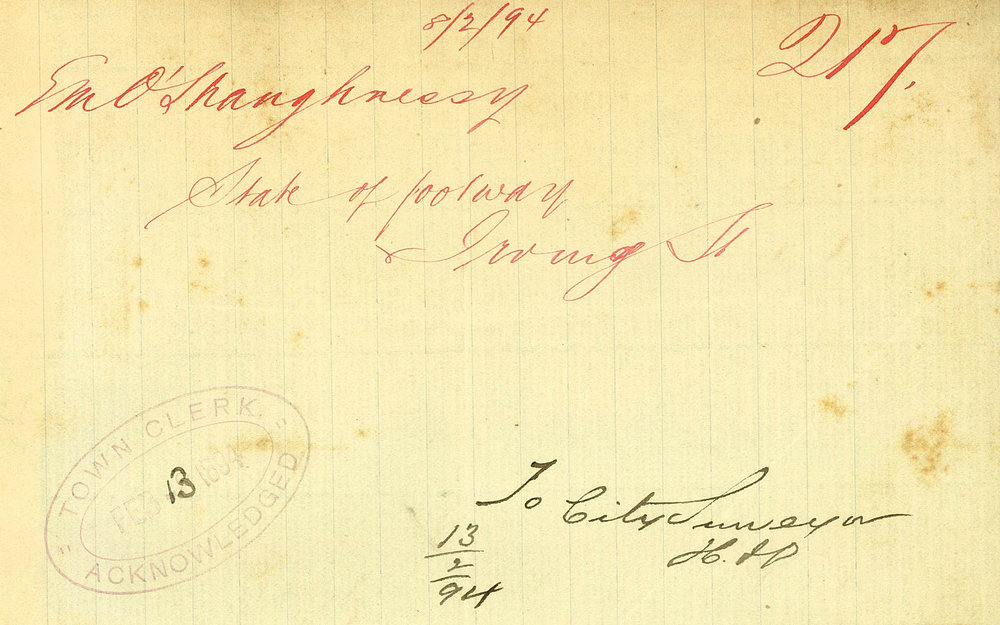 8/2/94
217.
E M O'Shaughnessy
State of footway
Irving St
TOWN CLERK
FEB 13 1894
"ACKNOWLEDGED"
To City Surveyor
13/2/94